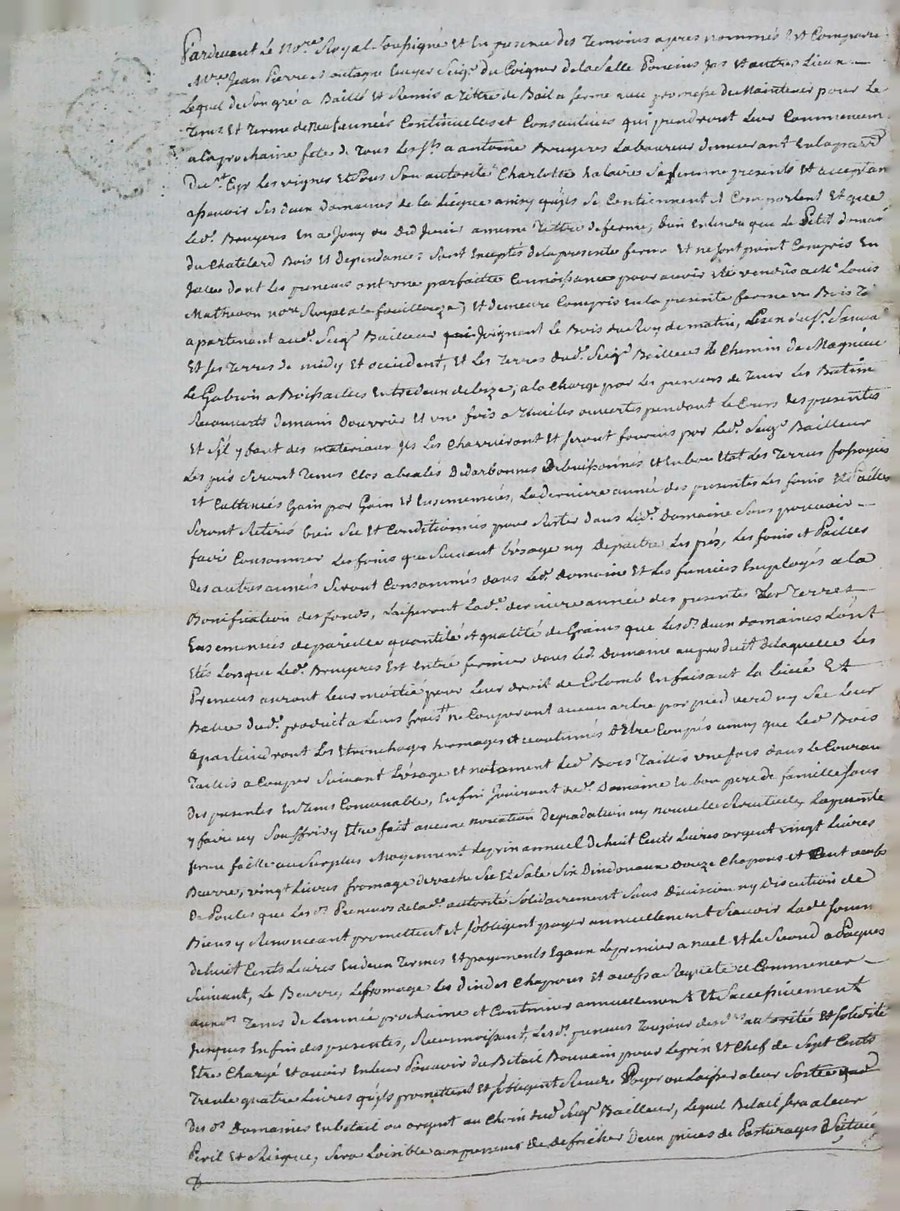 Pardevant Le No.re Royal Soussigné Et En presence des Temoins apres nommés Est Comparu
M.re Jean Pierre Ecuyer Seig.r du Coignet de la Salle Poncins Jas Et autres Lieux
Lequel de Son gré a Baillé Et Remis a Tittre de Bail a ferme avec promesse de Maintenir pour Le
Tems Et Terme de Neuf années Continuelles et Consecutives qui prendront Leur Commencem
a La prochaine fete de Tous Les S.ts a antoine Bruyeres Laboureur demeurant En La parr.
du St. Cyr Les vignes Et Sous Son autorité Charlotte Sa femme presents Et acceptan
a Scavoir Ses deux Domaines de la ainsy qu'ils Se Contiennent Et Comportent Et que
Led. Bruyeres En a Jouy au meme Tittre de ferme, bien Entendu que Le Petit domai
du Chatelard Bois Et dependances Sont Exceptés de la presente ferme Et ne Sont point Compris En
Icelle dont Les preneurs ont une parfaitte Connoissance pour avoir été vendus a M.e Louis
Mathevon no.re Royal a la fouillouze, Et demeure Compris En la presente ferme un Bois
apartenant aud. Seig.r Bailleur Joignant Le Bois du Roy de matin,
Et Ses Terres de midy Et occident, Et Les Terres dud. Seig.r Bailleur Le Chemin de Magnieu
Le Gabrion a Boisset a la Charge par Les preneurs de Tenir Les Batim
Recouverts de main d'ouvrier Et une fois a Thuiles ouvertes pendant Le Cours des presentes
Et S'il y faut des materiaux Ils Les Charrieront Et Seront fournis par Led. Seig.r Bailleur
Les prés Seront Tenus Clos Et En bon Etat Les Terres fossoyées
Et Cultivées Gain par Gain Et Ensemencées, La derniere année des presentes Les foins Et Pailles
Seront Retirés bien Sec Et Conditionnés pour Rester dans Led. Domaine Sans pouvoir
faire Consommer Les foins que Suivant L'usage ny Depaitre Les prés, Les foins et Pailles
Des autres années Seront Consommés dans Led. Domaine Et Les fumiers Employés a la
Bonification des fonds, Laisseront Lad. derniere année des presentes Les Terres
Ensemencées de pareille quantité Et qualité de Grains que Lesd. deux domaines L'ont
Etés Lorsque Led. Bruyeres Est Entré fermier dans Led. Domaine au produit de laquelle Les
Preneurs auront Leur moitié pour Leur droit de Colomb En faisant La Levée Et
Batue dud. produit a Leurs frais, ne Couperont aucun arbre par pied verd ny Sec Leur
apartiendront Les Etronchages hormages accoutumés D'Etre Coupés ainsy que Led. Bois
Taillis a Couper Suivant L'usage Et notament Led. Bois Taillis une fois dans Le Courant
Des presentes En Tems Convenable, Enfin Jouiront dud. Domaine En bon pere de famille Sans
y faire ny Souffrir y Etre fait aucune novation Degradation ny nouvelle La presente
ferme faitte au Surplus Moyennent Le prix annuel de huit Cents Livres argent vingt Livres
Beurre, vingt Livres fromage de vache Sec Et Salé Six Dindonaux Douze Chapons et
De Poules que Les d. Preneurs de lad. autorité Solidairement Sans Division ny Discution de
Biens y Renonceant promettent et S'obligent payer annuellement Scavoir Lad. Somm
de huit Cents Livres En deux Termes Et payements Egaux Le premier a noel Et Le Second a Paques
Suivant, Le Beurre, Le fromage Les dindes Chapons Et a Requete a Commencer
aux d. Tems de L'année prochaine et Continuer annuellement Et Successivement
Jusques Enfin des presentes, Reconnoissent, Les d. preneurs Toujour de autorité Et Solidité
Etre Chargé Et avoir En Leur Pouvoir du Betail Bouvain pour Le prix Et Chef de Sept Cents
Trente quatre Livres qu'ils promettent Et S'obligent Rendre Payer ou Laisser a leur Sortie
Des d. Domaines En betail ou argent au Choix dud. Seig.r Bailleur, Lequel Betail Sera a leur
Peril Et Risque, Sera Loisible aux preneurs de defricher Deux pieces de Pasturages